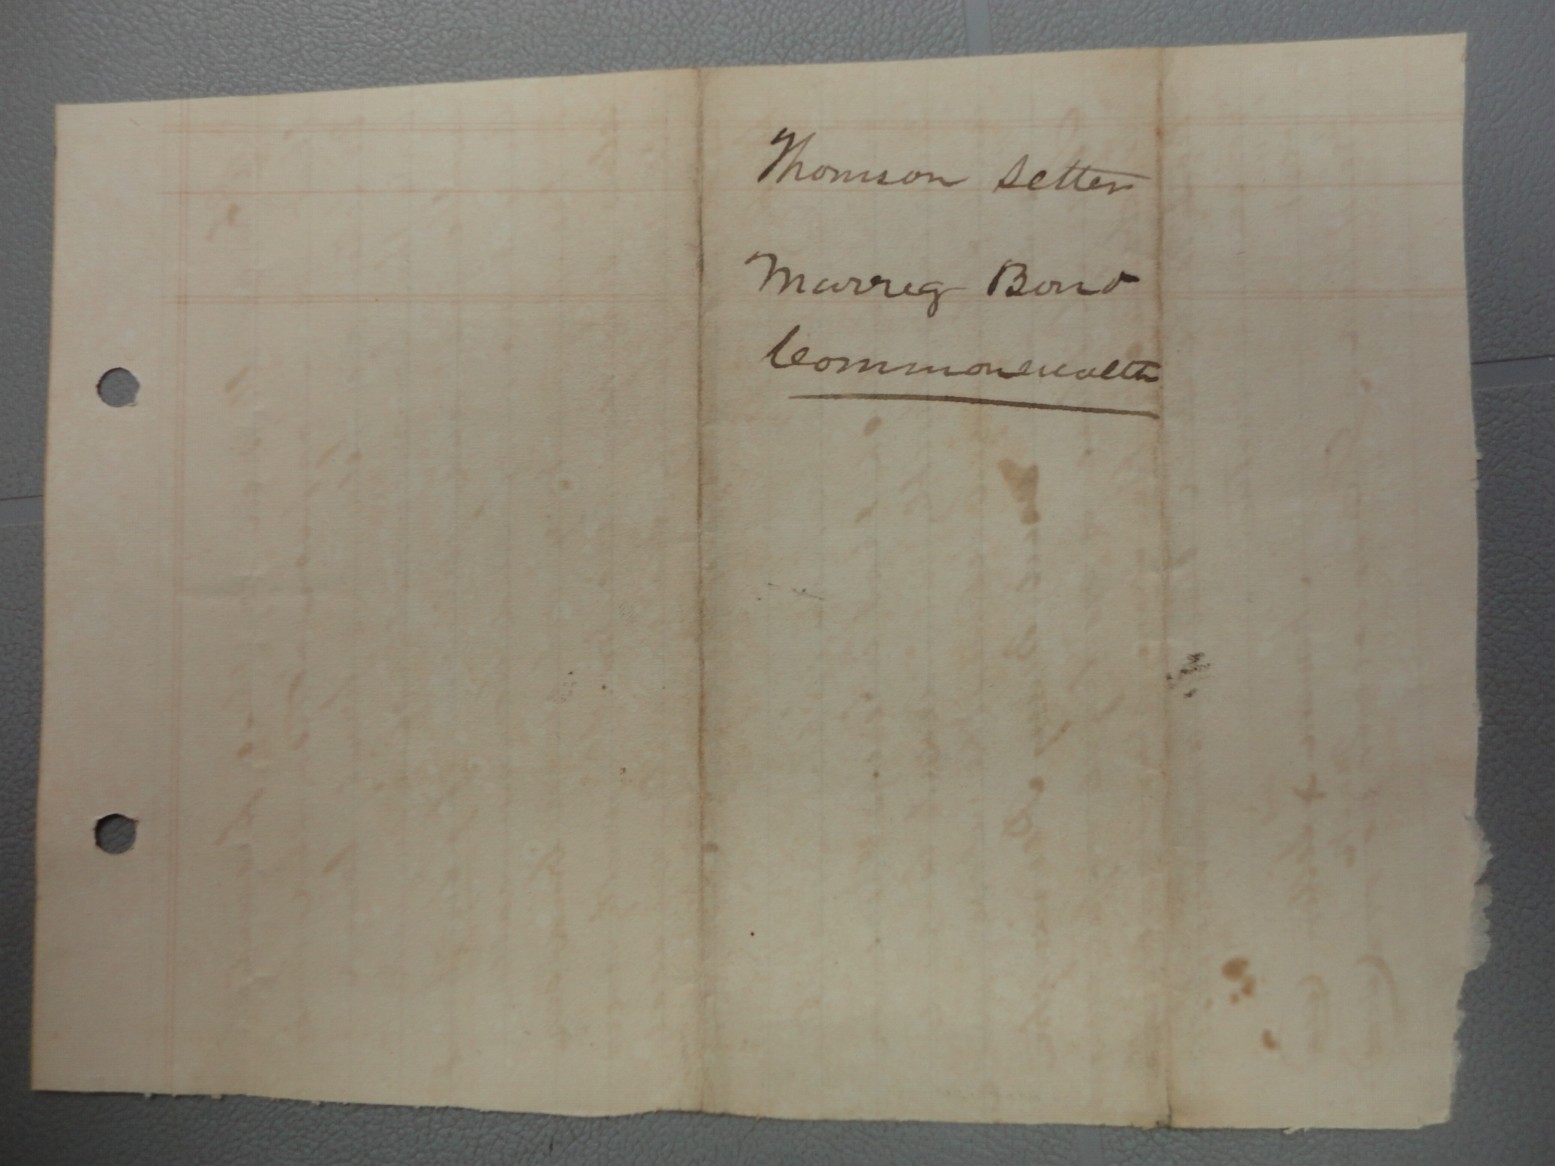 Thomson Setters
Marreg Bond
Commonwealth